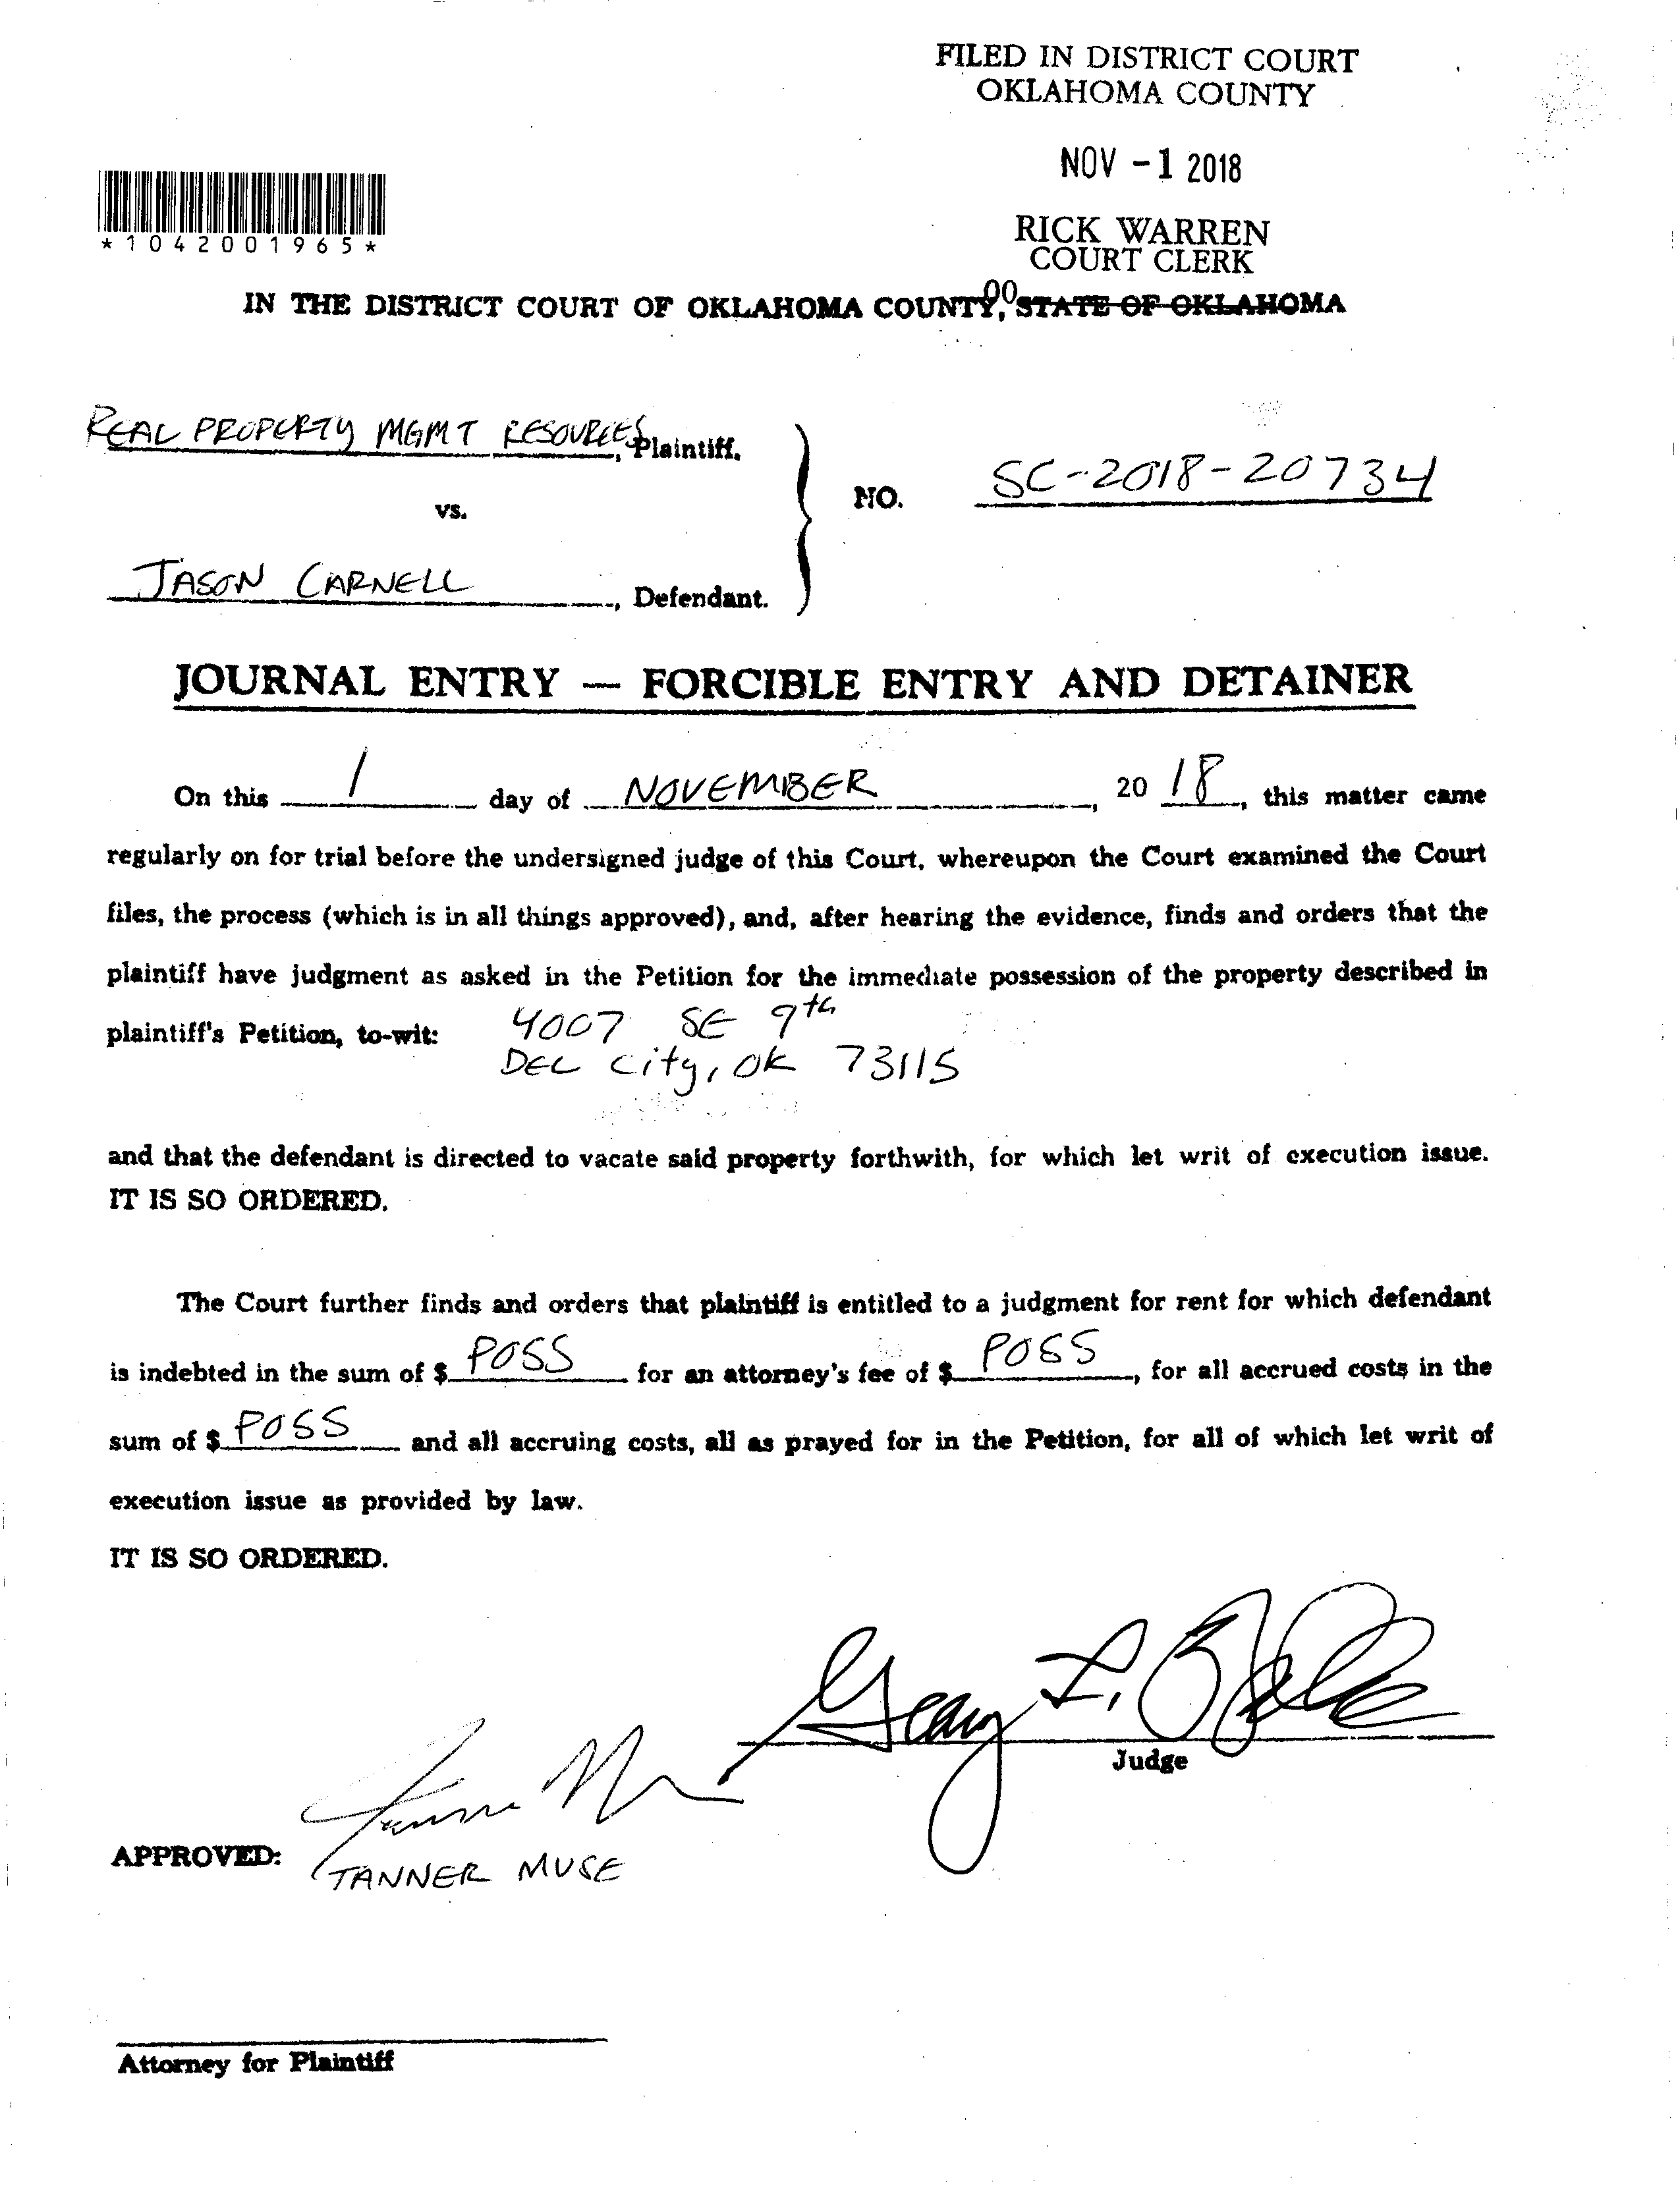 FILED IN DISTRICT COURT
OKLAHOMA COUNTY
NOV -1 2018
RICK WARREN
COURT CLERK
*1042001965*
IN THE DISTRICT COURT OF OKLAHOMA COUNTY, STATE OF OKLAHOMA
REAL PROPERTY MGMT RESOURCES, Plaintiff.
NO. SC-2018-20734
vs.
JASON CARNELL, Defendant.
JOURNAL ENTRY — FORCIBLE ENTRY AND DETAINER
On this 1 day of NOVEMBER, 20 18, this matter came
regularly on for trial before the undersigned judge of this Court, whereupon the Court examined the Court
files, the process (which is in all things approved), and, after hearing the evidence, finds and orders that the
plaintiff have judgment as asked in the Petition for the immediate possession of the property described in
plaintiff's Petition, to-wit: 4007 SE 9th
DEL City, OK 73115
and that the defendant is directed to vacate said property forthwith, for which let writ of execution issue.
IT IS SO ORDERED.
The Court further finds and orders that plaintiff is entitled to a judgment for rent for which defendant
is indebted in the sum of $ POSS for an attorney's fee of $ POSS, for all accrued costs in the
sum of $ POSS and all accruing costs, all as prayed for in the Petition, for all of which let writ of
execution issue as provided by law.
IT IS SO ORDERED.
Judge
APPROVED: TANNER MUSE
Attorney for Plaintiff